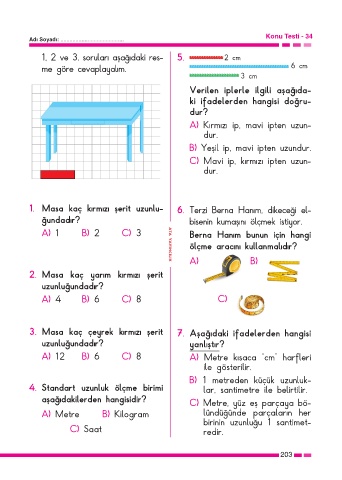 Adı Soyadı: ................................
Konu Testi - 34
1, 2 ve 3. soruları aşağıdaki res-
me göre cevaplayalım.
1. Masa kaç kırmızı şerit uzunlu-
ğundadır?
A) 1 B) 2 C) 3
2. Masa kaç yarım kırmızı şerit
uzunluğundadır?
A) 4 B) 6 C) 8
3. Masa kaç çeyrek kırmızı şerit
uzunluğundadır?
A) 12 B) 6 C) 8
4. Standart uzunluk ölçme birimi
aşağıdakilerden hangisidir?
A) Metre B) Kilogram
C) Saat
5. 2 cm
6 cm
3 cm
Verilen iplerle ilgili aşağıda-
ki ifadelerden hangisi doğru-
dur?
A) Kırmızı ip, mavi ipten uzun-
dur.
B) Yeşil ip, mavi ipten uzundur.
C) Mavi ip, kırmızı ipten uzun-
dur.
6. Terzi Berna Hanım, dikeceği el-
bisenin kumaşını ölçmek istiyor.
Berna Hanım bunun için hangi
ölçme aracını kullanmalıdır?
A) B)
C)
7. Aşağıdaki ifadelerden hangisi
yanlıştır?
A) Metre kısaca "cm" harfleri
ile gösterilir.
B) 1 metreden küçük uzunluk-
lar, santimetre ile belirtilir.
C) Metre, yüz eş parçaya bö-
lündüğünde parçaların her
birinin uzunluğu 1 santimet-
redir.
203